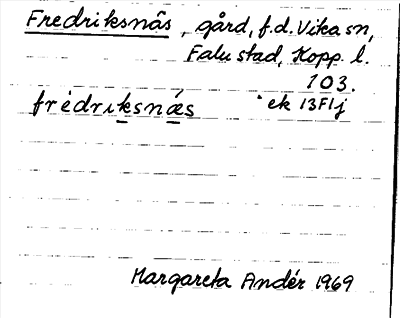 Fredriksnäs, gård, f.d. Vika sn,
Falu stad, Kopp. l.
103.
frédriksnæ̀s ek 13F1j
Margareta Andér 1969